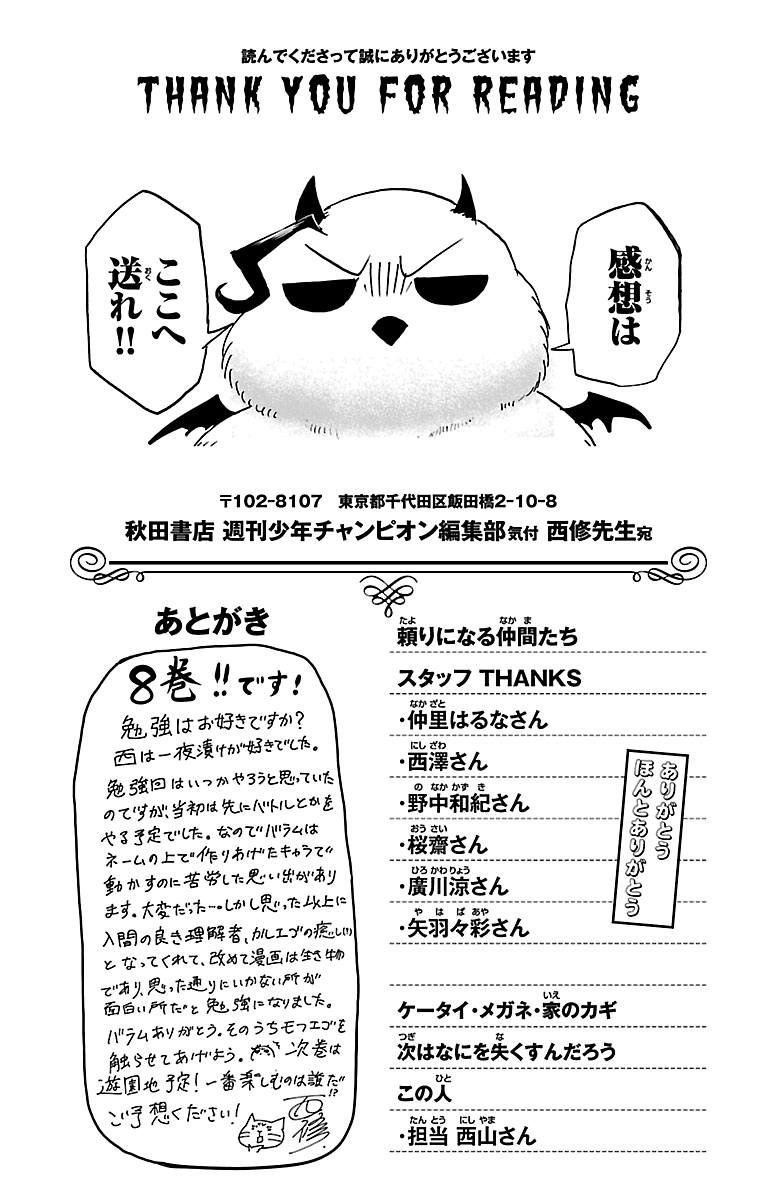 読んでくださって誠にありがとうございます
THANK YOU FOR READING
感想は
ここへ
送れ!!
〒102-8107 東京都千代田区飯田橋2-10-8
秋田書店 週刊少年チャンピオン編集部気付 西修先生宛
あとがき
8巻!!です!
勉強はお好きですか?
西は一夜漬けが好きでした。
勉強回はいつかやろうと思っていた
のですが、当初は先にバトルとかを
やる予定でした。なのでバラムは
ネームの上で作りあげたキャラで
動かすのに苦労した思い出があり
ます。大変だった…。しかし思った以上に
入間の良き理解者、カルエゴの癒し(!)
となってくれて、改めて漫画は生き物
であり、思った通りにいかない所が
面白い所だと勉強になりました。
バラムありがとう。そのうちモフエゴを
触らせてあげよう。次巻は
遊園地予定!一番楽しむのは誰だ!?
ご予想ください!
西修
頼りになる仲間たち
スタッフ THANKS
・仲里はるなさん
・西澤さん
・野中和紀さん
・桜齋さん
・廣川涼さん
・矢羽々彩さん
ありがとう
ほんとありがとう
ケータイ・メガネ・家のカギ
次はなにを失くすんだろう
この人
・担当 西山さん